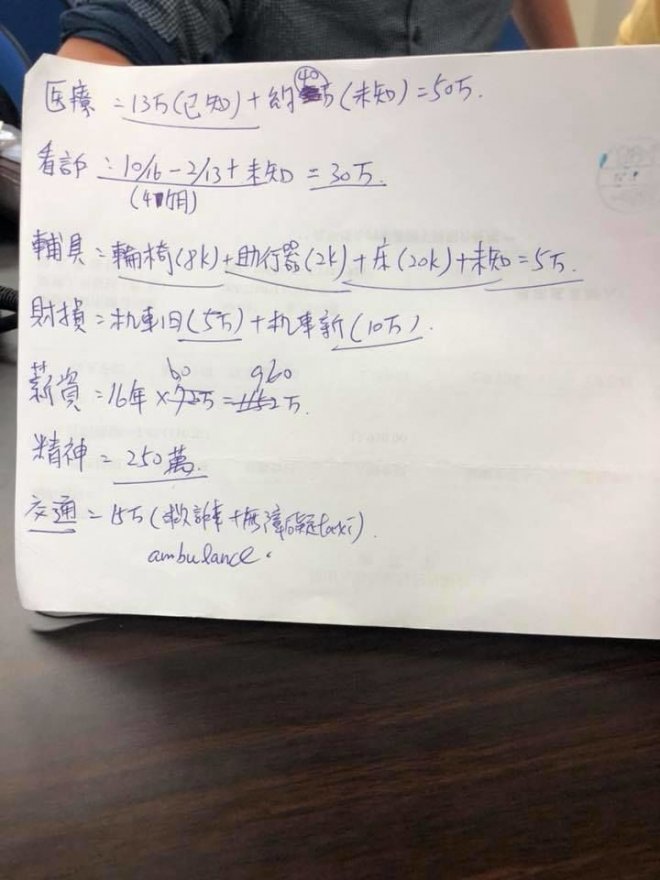 医療 = 13万(已知) + 約40万(未知) = 50万.
看診 : 10/16 - 2/13 + 未知 = 30万.
(4個月)
輔具 = 輪椅(8k) + 助行器(2k) + 床(20k) + 未知 = 5万.
財損 = 机車旧(5万) + 机車新(10万).
60 960
薪資 = 16年 × 72万 = 1152万.
精神 = 250萬.
交通 = 15万(救護車 + 無障礙taxi).
ambulance.